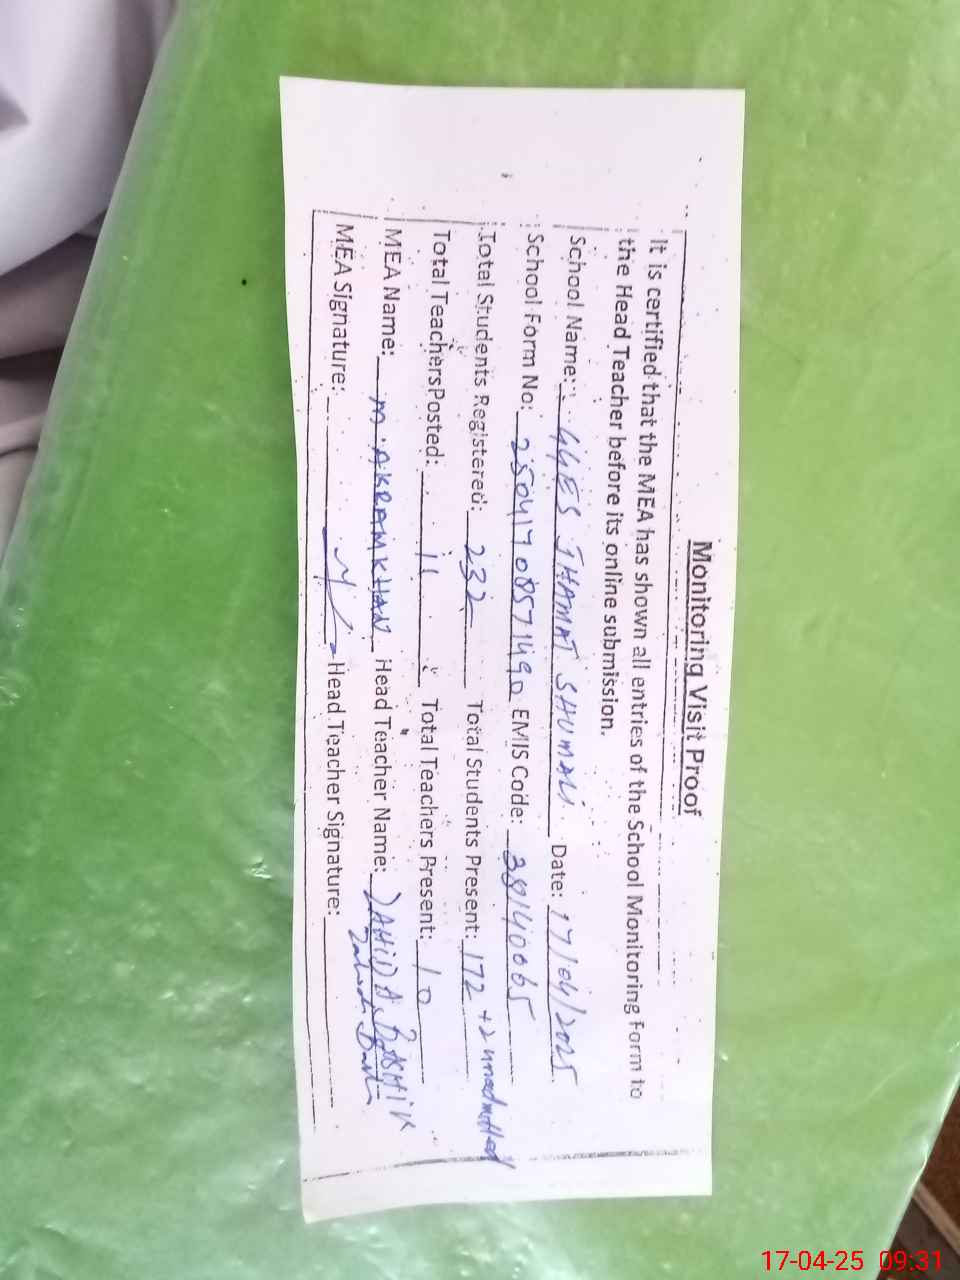 Monitoring Visit Proof
It is certified that the MEA has shown all entries of the School Monitoring Form to
the Head Teacher before its online submission.
School Name: GGES JHAMAT SHUMALI Date: 17/04/2025
School Form No: 25041708571490 EMIS Code: 38140065
Total Students Registered: 232 Total Students Present: 172 +2 unadmitted
Total Teachers Posted: 11 Total Teachers Present: 10
MEA Name: M. AKRAM KHAN Head Teacher Name: ZAHIDA BASHIR
MEA Signature: Head Teacher Signature:
17-04-25 09:31